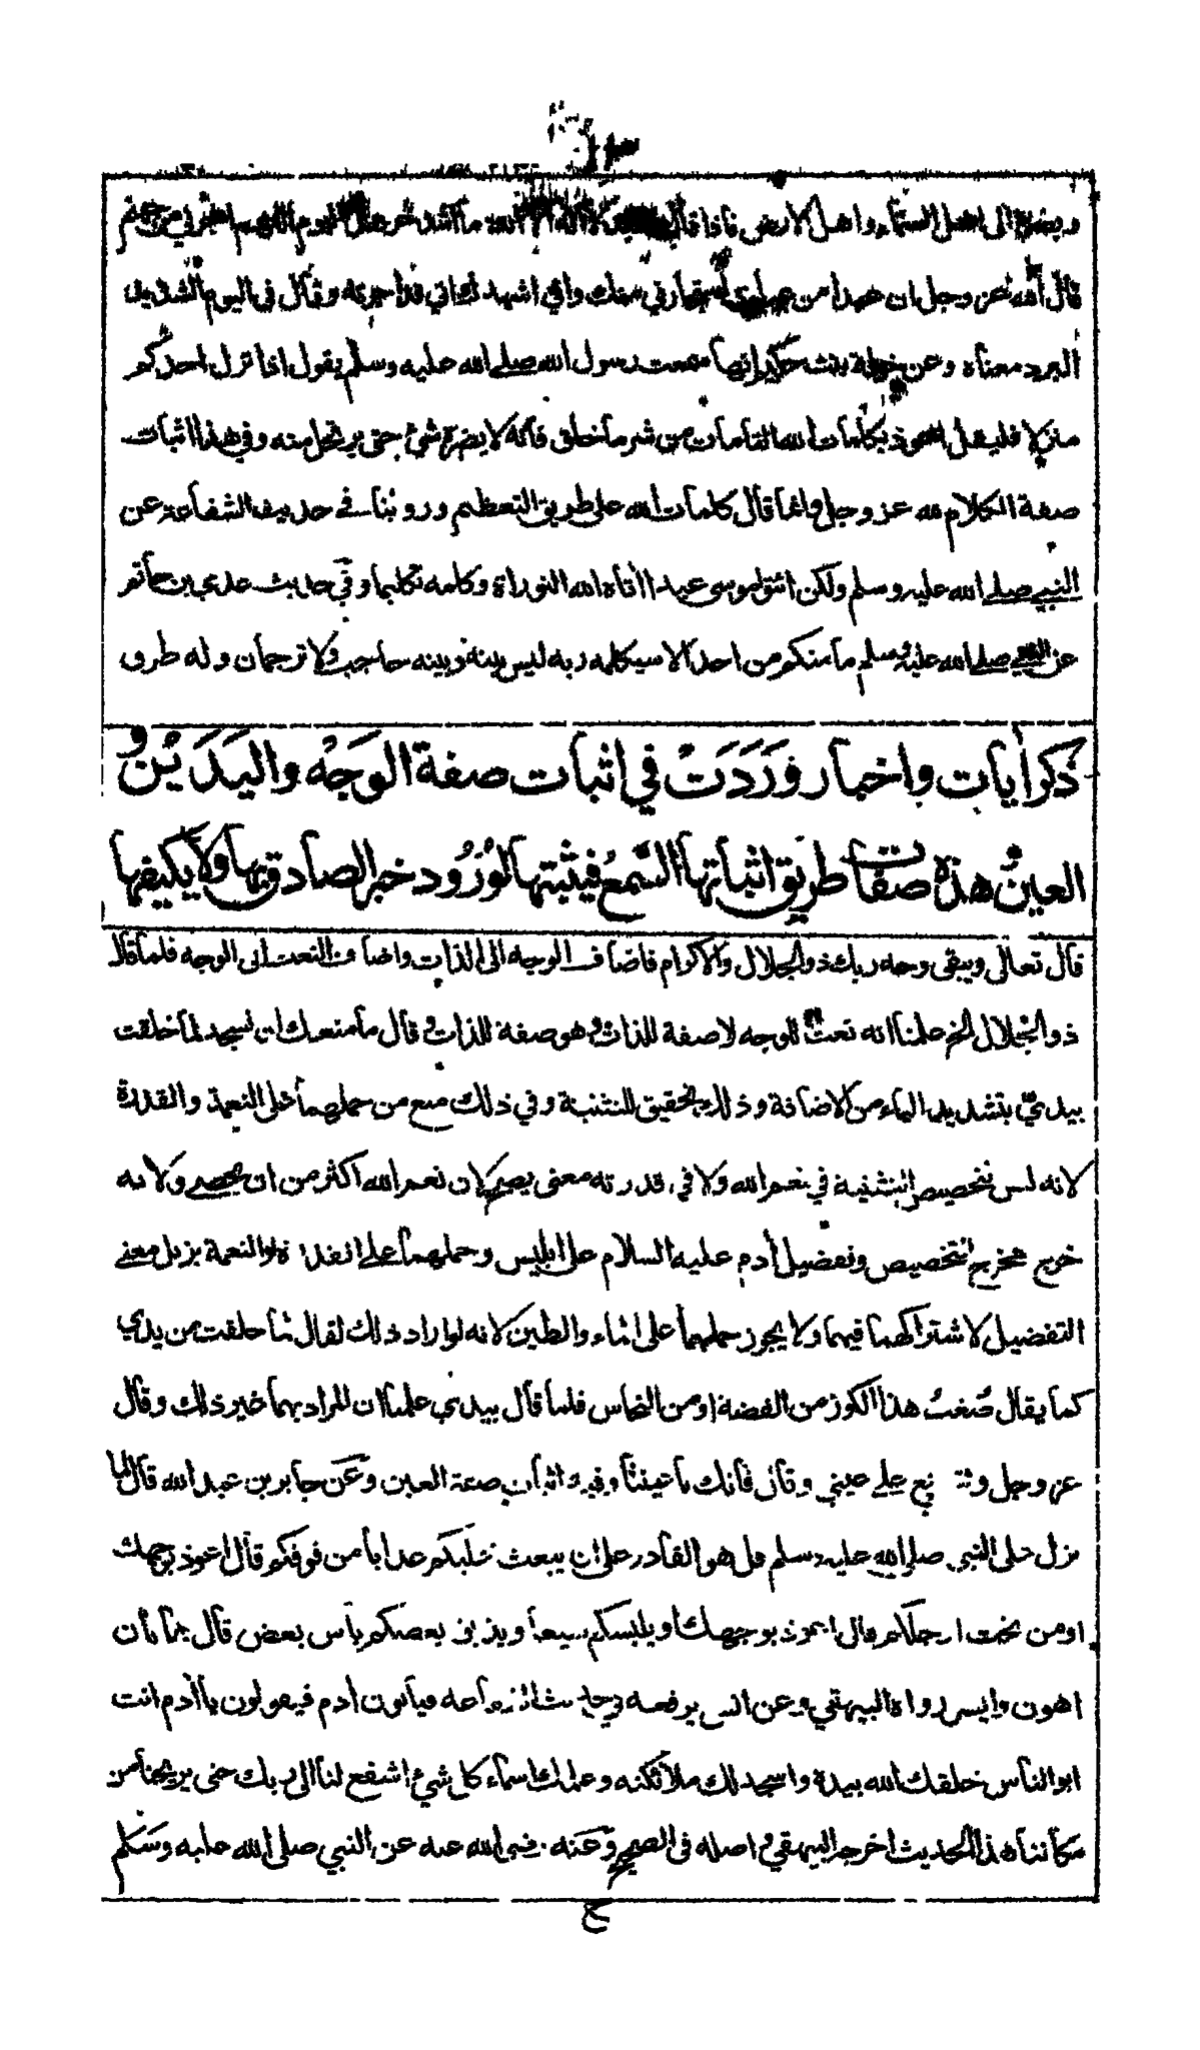 وبصره الى اهل السماء واهل الارض فاذا قال العبد لا اله الا الله ما اشد حر هذا اليوم اللهم اجرني من جهنم
قال الله عز وجل ان عبدا من عبادي استجارني منك واني اشهدك اني قد اجرته وقال في اليوم الشديد
البرد معناه وعن خولة بنت حكيم انها سمعت رسول الله صلى الله عليه وسلم يقول اذا نزل احدكم
منزلا فليقل اعوذ بكلمات الله التامات من شر ما خلق فانه لا يضره شئ حتى يرتحل منه وفي هذا اثبات
صفة الكلام لله عز وجل وانما قال كلمات الله على طريق التعظيم وروينا في حديث الشفاعة عن
النبي صلى الله عليه وسلم ولكن ائتوا موسى عبدا اتاه الله التوراة وكلمه تكليما وفي حديث عدي بن حاتم
عن النبي صلى الله عليه وسلم ما منكم من احد الا سيكلمه ربه ليس بينه وبينه حاجب ولا ترجمان وله طرق
ذكر ايات واخبار وردت في اثبات صفة الوجه واليدين و
العين هذه صفات طريق اثباتها السمع فيثبتها لورود خبر الصادق بها ولا يكيفها
قال تعالى ويبقى وجه ربك ذو الجلال والاكرام فاضاف الوجه الى الذات واضاف النعت الى الوجه فلما قال
ذو الجلال الخ علمنا انه نعت للوجه لا صفة للذات وهو صفة للذات وقال ما منعك ان تسجد لما خلقت
بيدي بتشديد الياء من الاضافة وذلك تحقيق للتثنية وفي ذلك منع من حملهما على النعمة والقدرة
لانه ليس لتخصيص التثنية في نعم الله ولا في قدرته معنى يصح لان نعم الله اكثر من ان تحصى ولانه
خرج مخرج التخصيص وتفضيل ادم عليه السلام على ابليس وحملهما على القدرة والنعمة يزيل معنى
التفضيل لاشتراكهما فيهما ولا يجوز حملهما على الماء والطين لانه لو اراد ذلك لقال لما خلقت من يدي
كما يقال صنعت هذا الكوز من الفضة او من النحاس فلما قال بيدي علمنا ان المراد بهما غير ذلك وقال
عز وجل ولتصنع على عيني وقال فانك باعيننا وفيه اثبات صفة العين وعن جابر بن عبد الله قال لما
نزل على النبي صلى الله عليه وسلم قل هو القادر على ان يبعث عليكم عذابا من فوقكم قال اعوذ بوجهك
او من تحت ارجلكم قال اعوذ بوجهك او يلبسكم شيعا ويذيق بعضكم بأس بعض قال هاتان
اهون وايسر رواه البيهقي وعن انس يرفعه في حديث الشفاعة فيأتون ادم فيقولون يا ادم انت
ابو الناس خلقك الله بيده واسجد لك ملائكته وعلمك اسماء كل شئ اشفع لنا الى ربك حتى يريحنا من
مكاننا هذا الحديث اخرجه البيهقي واصله في الصحيح وعنه رضي الله عنه عن النبي صلى الله عليه وسلم